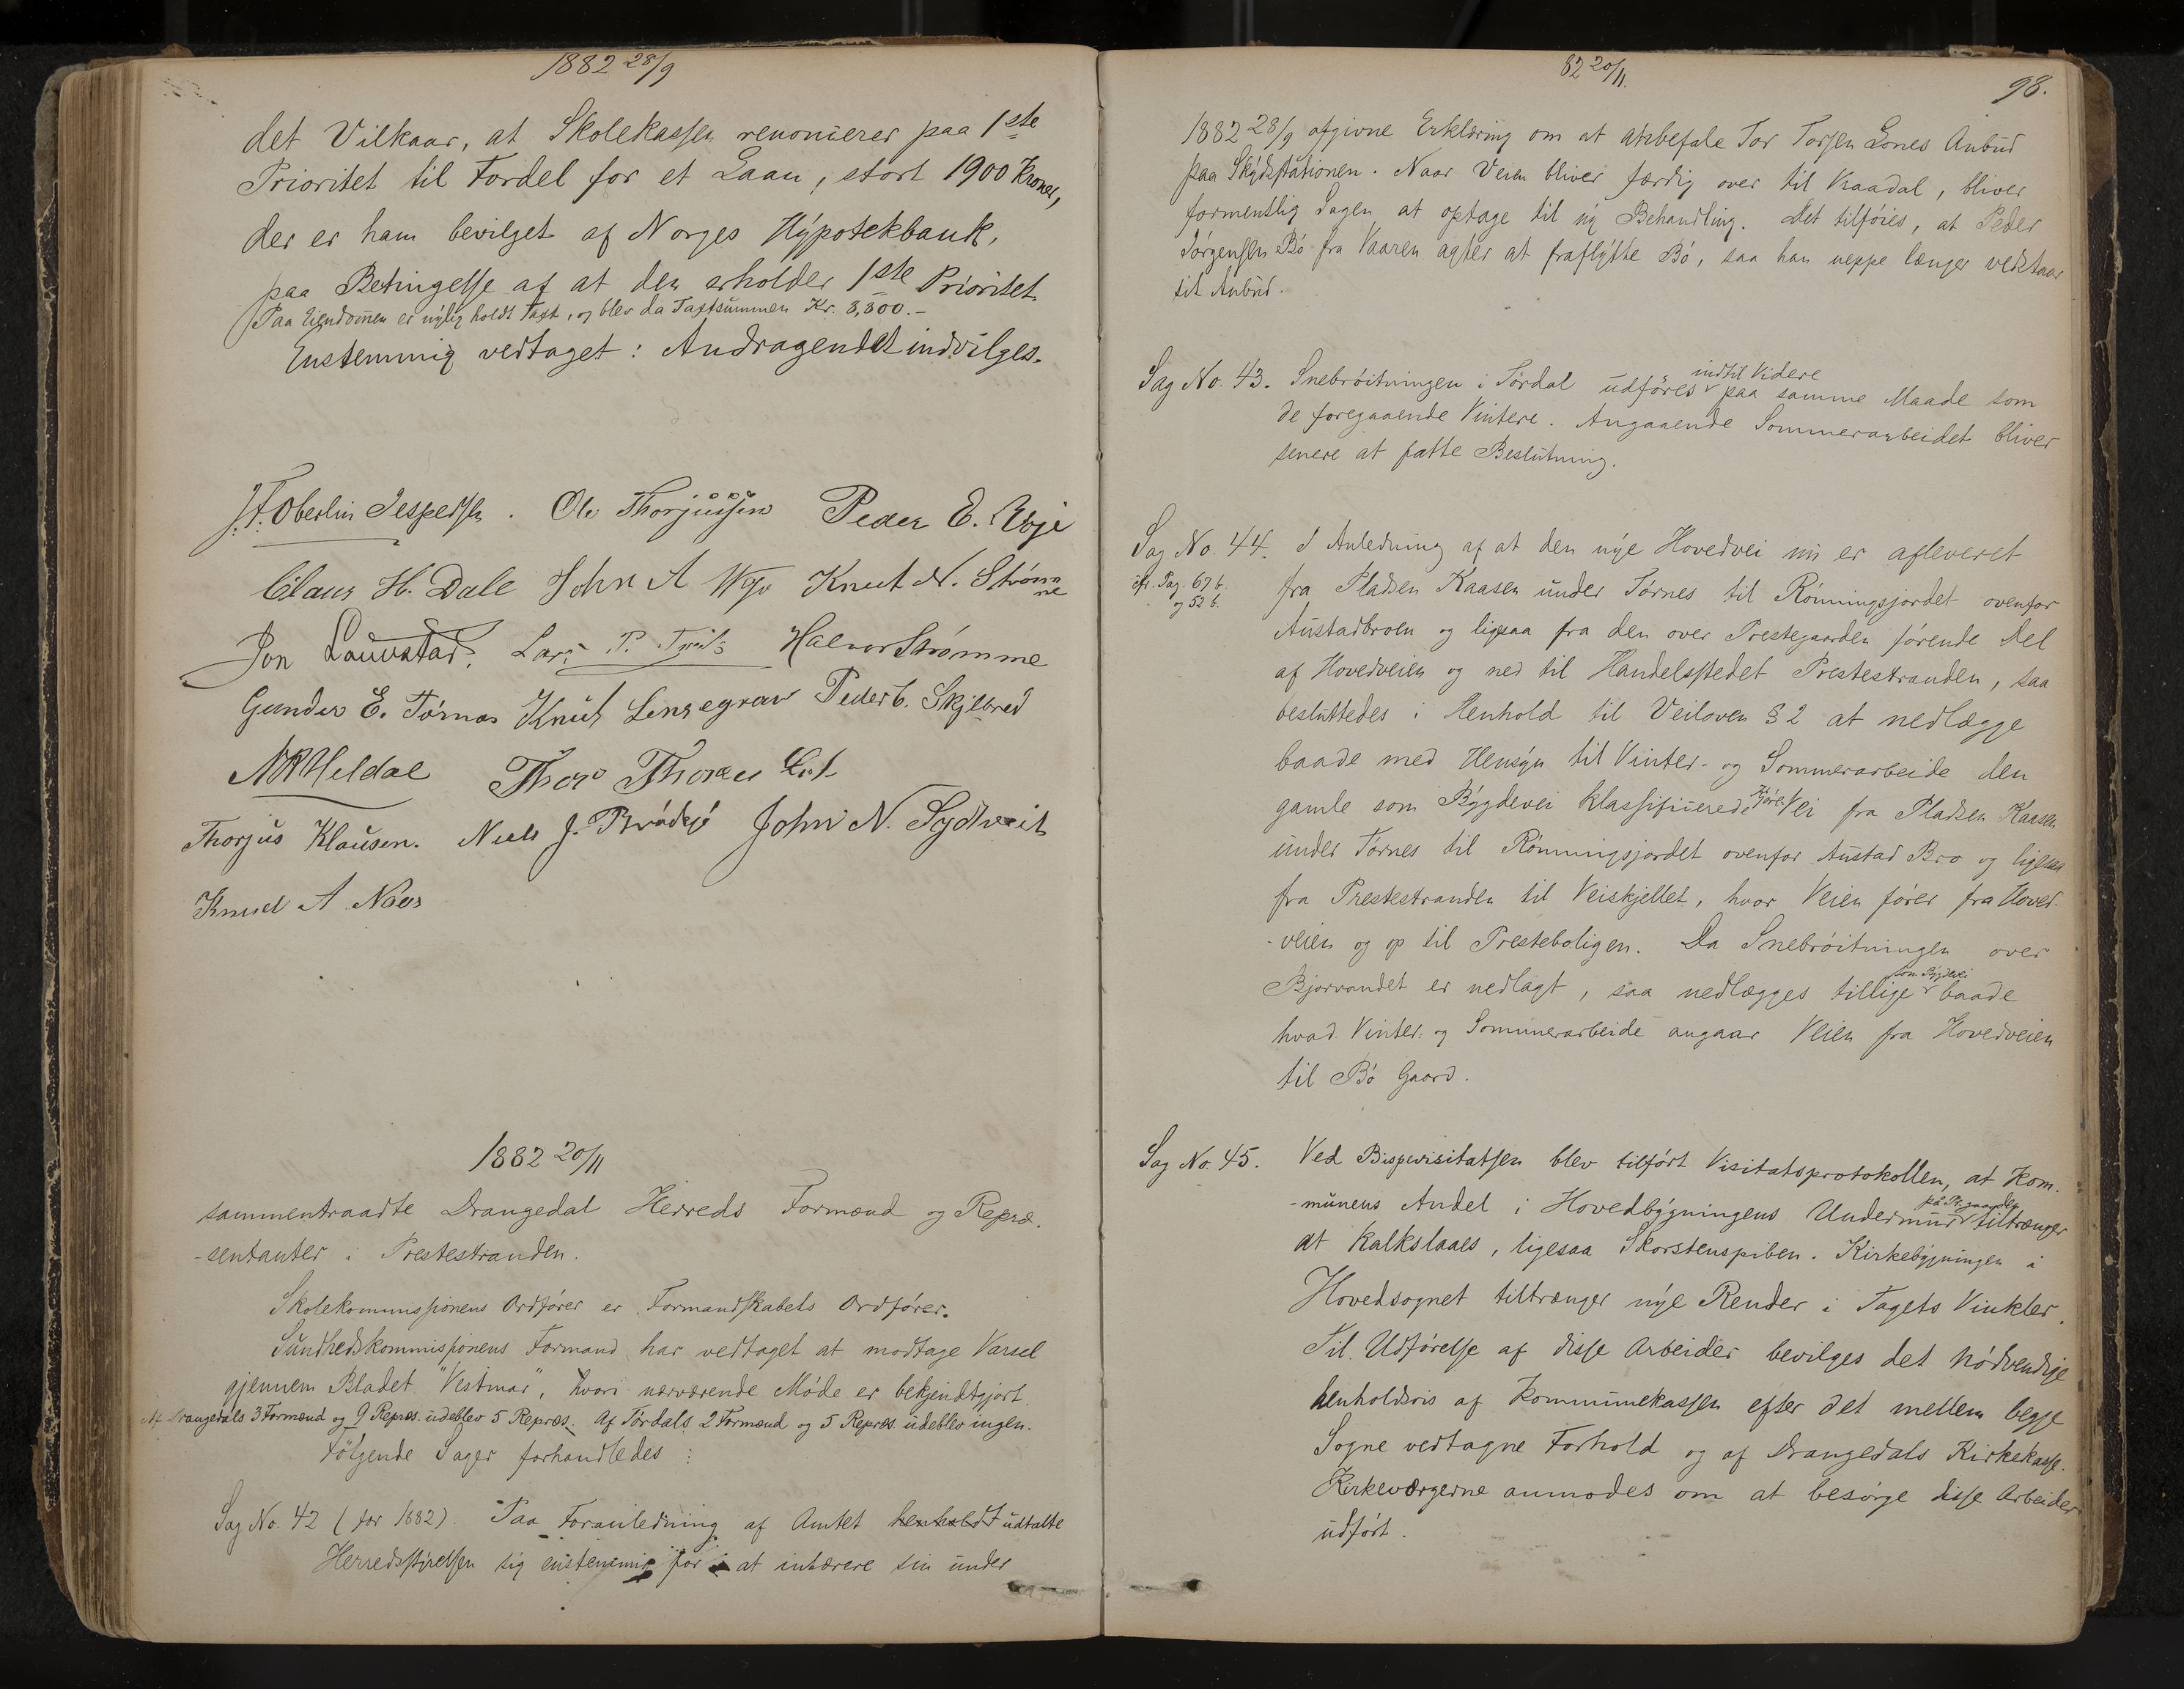 1882 28/9
det Vilkaar, at Skolekassen renoncerer paa 1ste
Prioritet til Fordel for et Laan, stort 1900 Kroner,
der er ham bevilget af Norges Hypotekbank,
paa Betingelse af at den erholder 1ste Prioritet.
Paa Eiendommen er nylig holdt Taxt, og blev da Taxtsummen Kr. 3,800.-
Enstemmig vedtaget: Andragendet indvilges.
J. F. Oberlin Jespersen. Ole Thorjussen Peder E.
Claus H. Dale John A Knut N. Strømme
Jon Lauvstad. Lars P. Halvor Strømme
Gunder E. Tørnes Knut Peder C. Skjelbred
Heldal Thor
Thorjus Klausen. Niels J. John N. Sydtveit
Knud A
1882 20/11
sammentraadte Drangedal Herreds Formænd og Repræ-
-sentanter i Prestestranden.
Skolekommissionens Ordfører er Formandskabets Ordfører.
Sundhedskommissionens Formand har vedtaget at modtage Varsel
gjennem Bladet "Vestmar", hvori nærværende Møde er bekjendtgjort.
Af Drangedals 3 Formænd og 9 Repræs. udeblev 5 Repræs. Af Tørdals 2 Formænd og 5 Repræs. udeblev ingen.
Følgende Sager forhandledes:
Sag No. 42 (for 1882). Paa Foranledning af Amtet henholdt udtalte
Herredsstyrelsen sig enstemmig for at inhærere sin under
82 20/11.
98.
1882 28/9 afgivne Erklæring om at anbefale Tor Torsen Lones Anbud
paa Skydsstationen. Naar Veien bliver færdig over til Kraadal, bliver
formentlig Sagen at optage til ny Behandling. Det tilføies, at Peder
Jørgensen Bø fra Vaaren agter at fraflytte Bø, saa han neppe længer vedstaar
sit Anbud.
Sag No. 43. Snebrøitningen i Tørdal udføres indtil Videre paa samme Maade som
de foregaaende Vintere. Angaaende Sommerarbeidet bliver
senere at fatte Beslutning.
Sag No. 44. I Anledning af at den nye Hovedvei nu er afleveret
cfr. Pag. 67 b. og 52 b.
fra Pladsen Kaasen under Tørnes til Rønningsjordet ovenfor
Austadbroen og ligesaa fra den over Prestegaarden førende Del
af Hovedveien og ned til Handelsstedet Prestestranden, saa
besluttedes i Henhold til Veiloven § 2 at nedlægge
baade med Hensyn til Vinter- og Sommerarbeide den
gamle som Bygdevei klassificerede Kjøre-Vei fra Pladsen Kaasen
under Tørnes til Rønningsjordet ovenfor Austad Bro og ligesaa
fra Prestestranden til Veiskjellet, hvor Veien fører fra Hoved-
-veien og op til Presteboligen. Da Snebrøitningen over
Bjorvandet er nedlagt, saa nedlægges tillige som Bygdevei baade
hvad Vinter- og Sommerarbeide angaar Veien fra Hovedveien
til Bø Gaard.
Sag No. 45. Ved Bispevisitatsen blev tilført Visitatsprotokollen, at Kom-
-munens Andel i Hovedbygningens Undermur på Prgaarden tiltrænger
at Kalkslaaes, ligesaa Skorstenspiben. Kirkebygningen i
Hovedsognet tiltrænger nye Render i Tagets Vinkler.
Til Udførelse af disse Arbeider bevilges det nødvendige
henholdsvis af Kommunekassen efter det mellem begge
Sogne vedtagne Forhold og af Drangedals Kirkekasse.
Kirkeværgerne anmodes om at besørge disse Arbeider
udført.